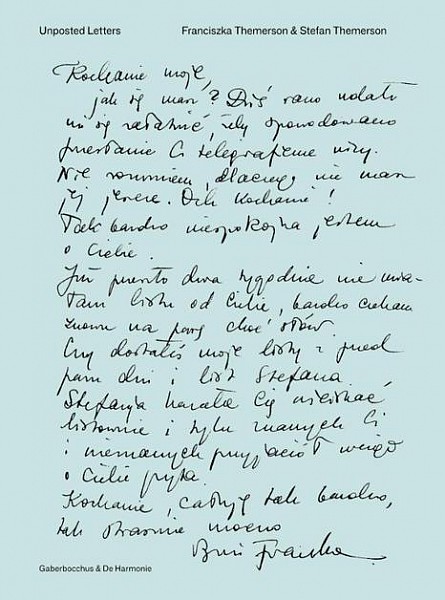 Unposted Letters Franciszka Themerson & Stefan Themerson
Kochanie moje,
jak się masz? Dziś rano udało
mi się załatwić, żeby spowodowano
przesłanie Ci telegraficzne wizy.
Nie rozumiem, dlaczego nie masz
jej jeszcze. Och kochanie!
Tak bardzo niespokojna jestem
o Ciebie.
Już przeszło dwa tygodnie nie mia-
łam listu od Ciebie, bardzo czekam
znowu na parę choć słów.
Czy dostałeś moje listy z przed
paru dni i list Stefana.
Stefania kazała Cię uściskać,
listownie i tylu znanych Ci
i nieznanych przyjaciół wciąż
o Ciebie pyta.
Kochanie, całuję tak bardzo,
tak strasznie mocno
Franka.
Gaberbocchus & De Harmonie